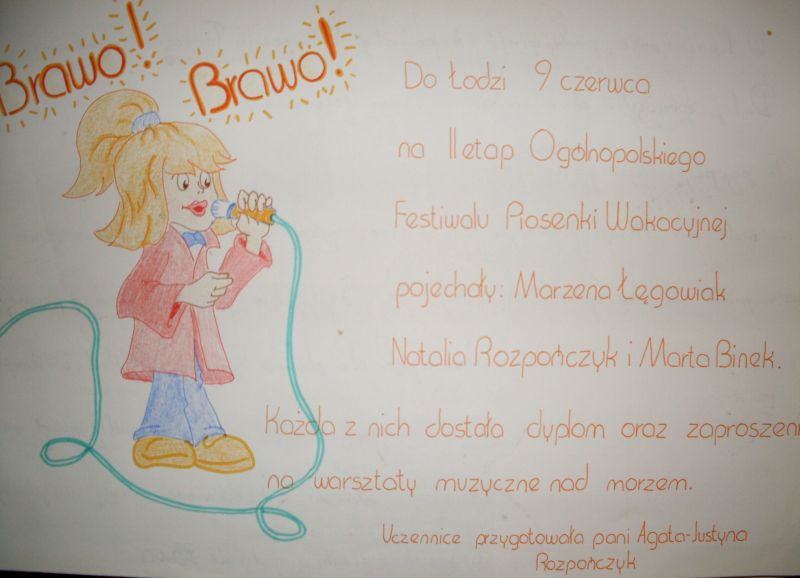 Brawo! Brawo!
Do Łodzi 9 czerwca
na II etap Ogólnopolskiego
Festiwalu Piosenki Wakacyjnej
pojechały: Marzena Łęgowiak
Natalia Rozpończyk i Marta Binek.
Każda z nich dostała dyplom oraz zaproszeni
na warsztaty muzyczne nad morzem.
Uczennice przygotowała pani Agata-Justyna
Rozpończyk